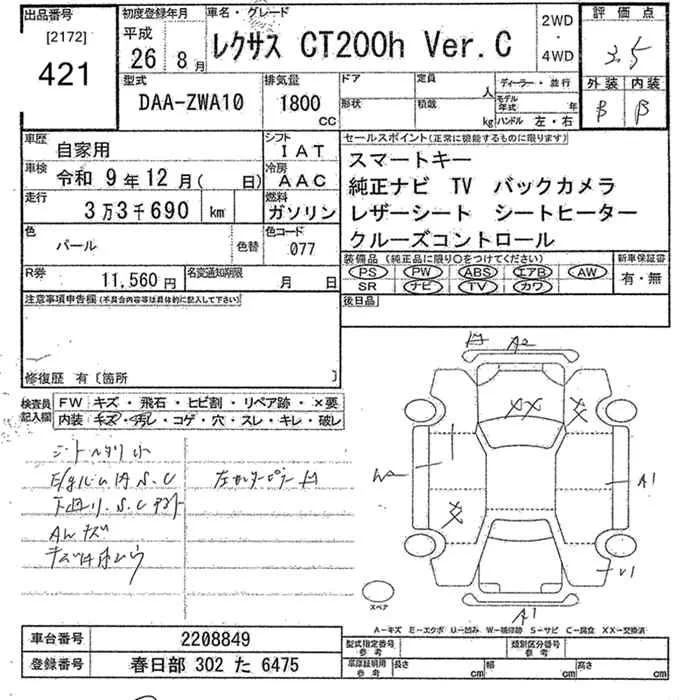 出品番号
[2172]
421
初度登録年月
平成
26 8月
車名・グレード
レクサス CT200h Ver.C
2WD
・
4WD
評価点
3.5
外装 内装
B B
型式
DAA-ZWA10
排気量
1800
CC
ドア
形状
定員
人
積載
kg
ディーラー・並行
モデル年式 年
ハンドル 左・右
車歴
自家用
シフト
IAT
車検
令和 9年12月( 日)
冷房
AAC
走行
3万3千690 km
燃料
ガソリン
色
パール
色替
色コード
077
R券
11,560円
名変通知期限
月 日
セールスポイント(正常に機能するものに限ります)
スマートキー
純正ナビ TV バックカメラ
レザーシート シートヒーター
クルーズコントロール
装備品 (純正品に限り○をつけてください)
PS PW ABS エアB AW
SR ナビ TV カワ
新車保証書
有・無
後日品
注意事項申告欄(不具合内容等は具体的に記入して下さい)
修復歴 有〔箇所 〕
検査員記入欄
FW キズ・飛石・ヒビ割・リペア跡・×要
内装 キズ・汚レ・コゲ・穴・スレ・キレ・破レ
AWキズ
A2
XX
X
A1
X
U1
A1
スペア
A-キズ E-エクボ U-凹み W-補修跡 S-サビ C-腐食 XX-交換済
車台番号
2208849
登録番号
春日部 302 た 6475
型式指定番号
参考
類別区分番号
参考
車庫証明用
参考
長さ cm
幅 cm
高さ cm